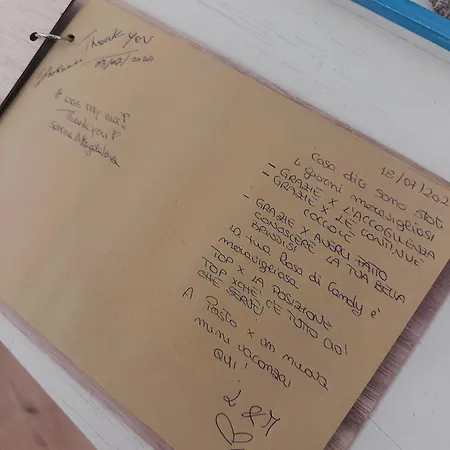 Thank you
07/07/2021
It was very nice!
Thank you!
18/07/202
Cosa dico sono stati
4 giorni meravigliosi
- GRAZIE X L'ACCOGLIENZA
- GRAZIE X LE CONTINUE
COCCOLE
- GRAZIE X AVERCI FATTO
CONOSCERE LA TUA BELLA
BRINDISI
La tua Casa di Candy è
meravigliosa
TOP X LA POSIZIONE
TOP XCHÉ C'È TUTTO CIÒ
CHE SERVE!
A Presto x un nuova
mini vacanza
QUI!
L & M